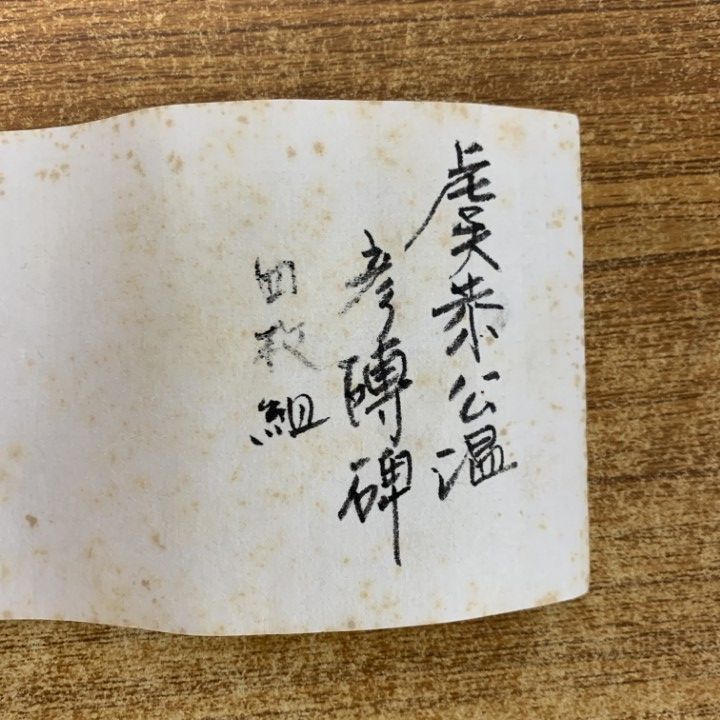 虞恭公温
彦磚碑
四枚組